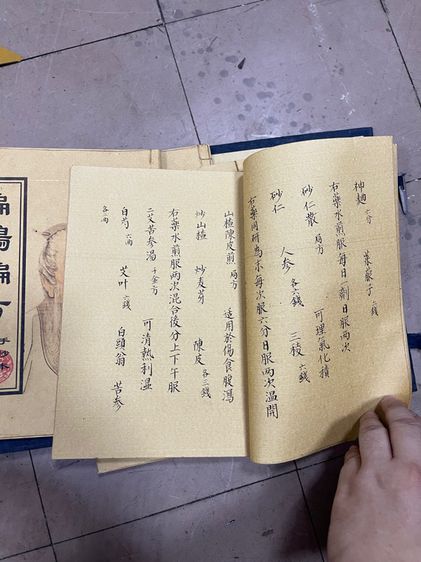 神麯 六分 莱菔子 七錢
右藥水煎服每日一劑日服两次
砂仁散 局方 可理氣化積
砂仁 人参 各六錢 三稜 六錢
右藥同研為末每次服六分日服两次温開
山楂陳皮煎 局方 适用於傷食腹瀉
炒山楂 炒麦芽 陳皮 各三錢
右藥水煎服两次混合後分上下午服
二艾苦参湯 千金方 可清熱利濕
白芍 六両 艾叶 六錢 白頭翁 苦参
各両